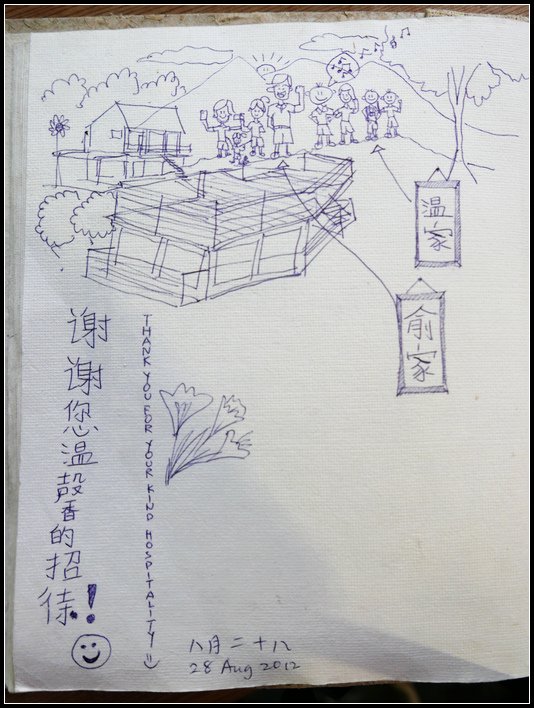 温家
俞家
谢谢您温馨的招待!
THANK YOU FOR YOUR KIND HOSPITALITY! :)
八月二十八
28 Aug 2012